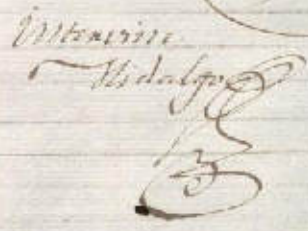 interino
Hidalgo